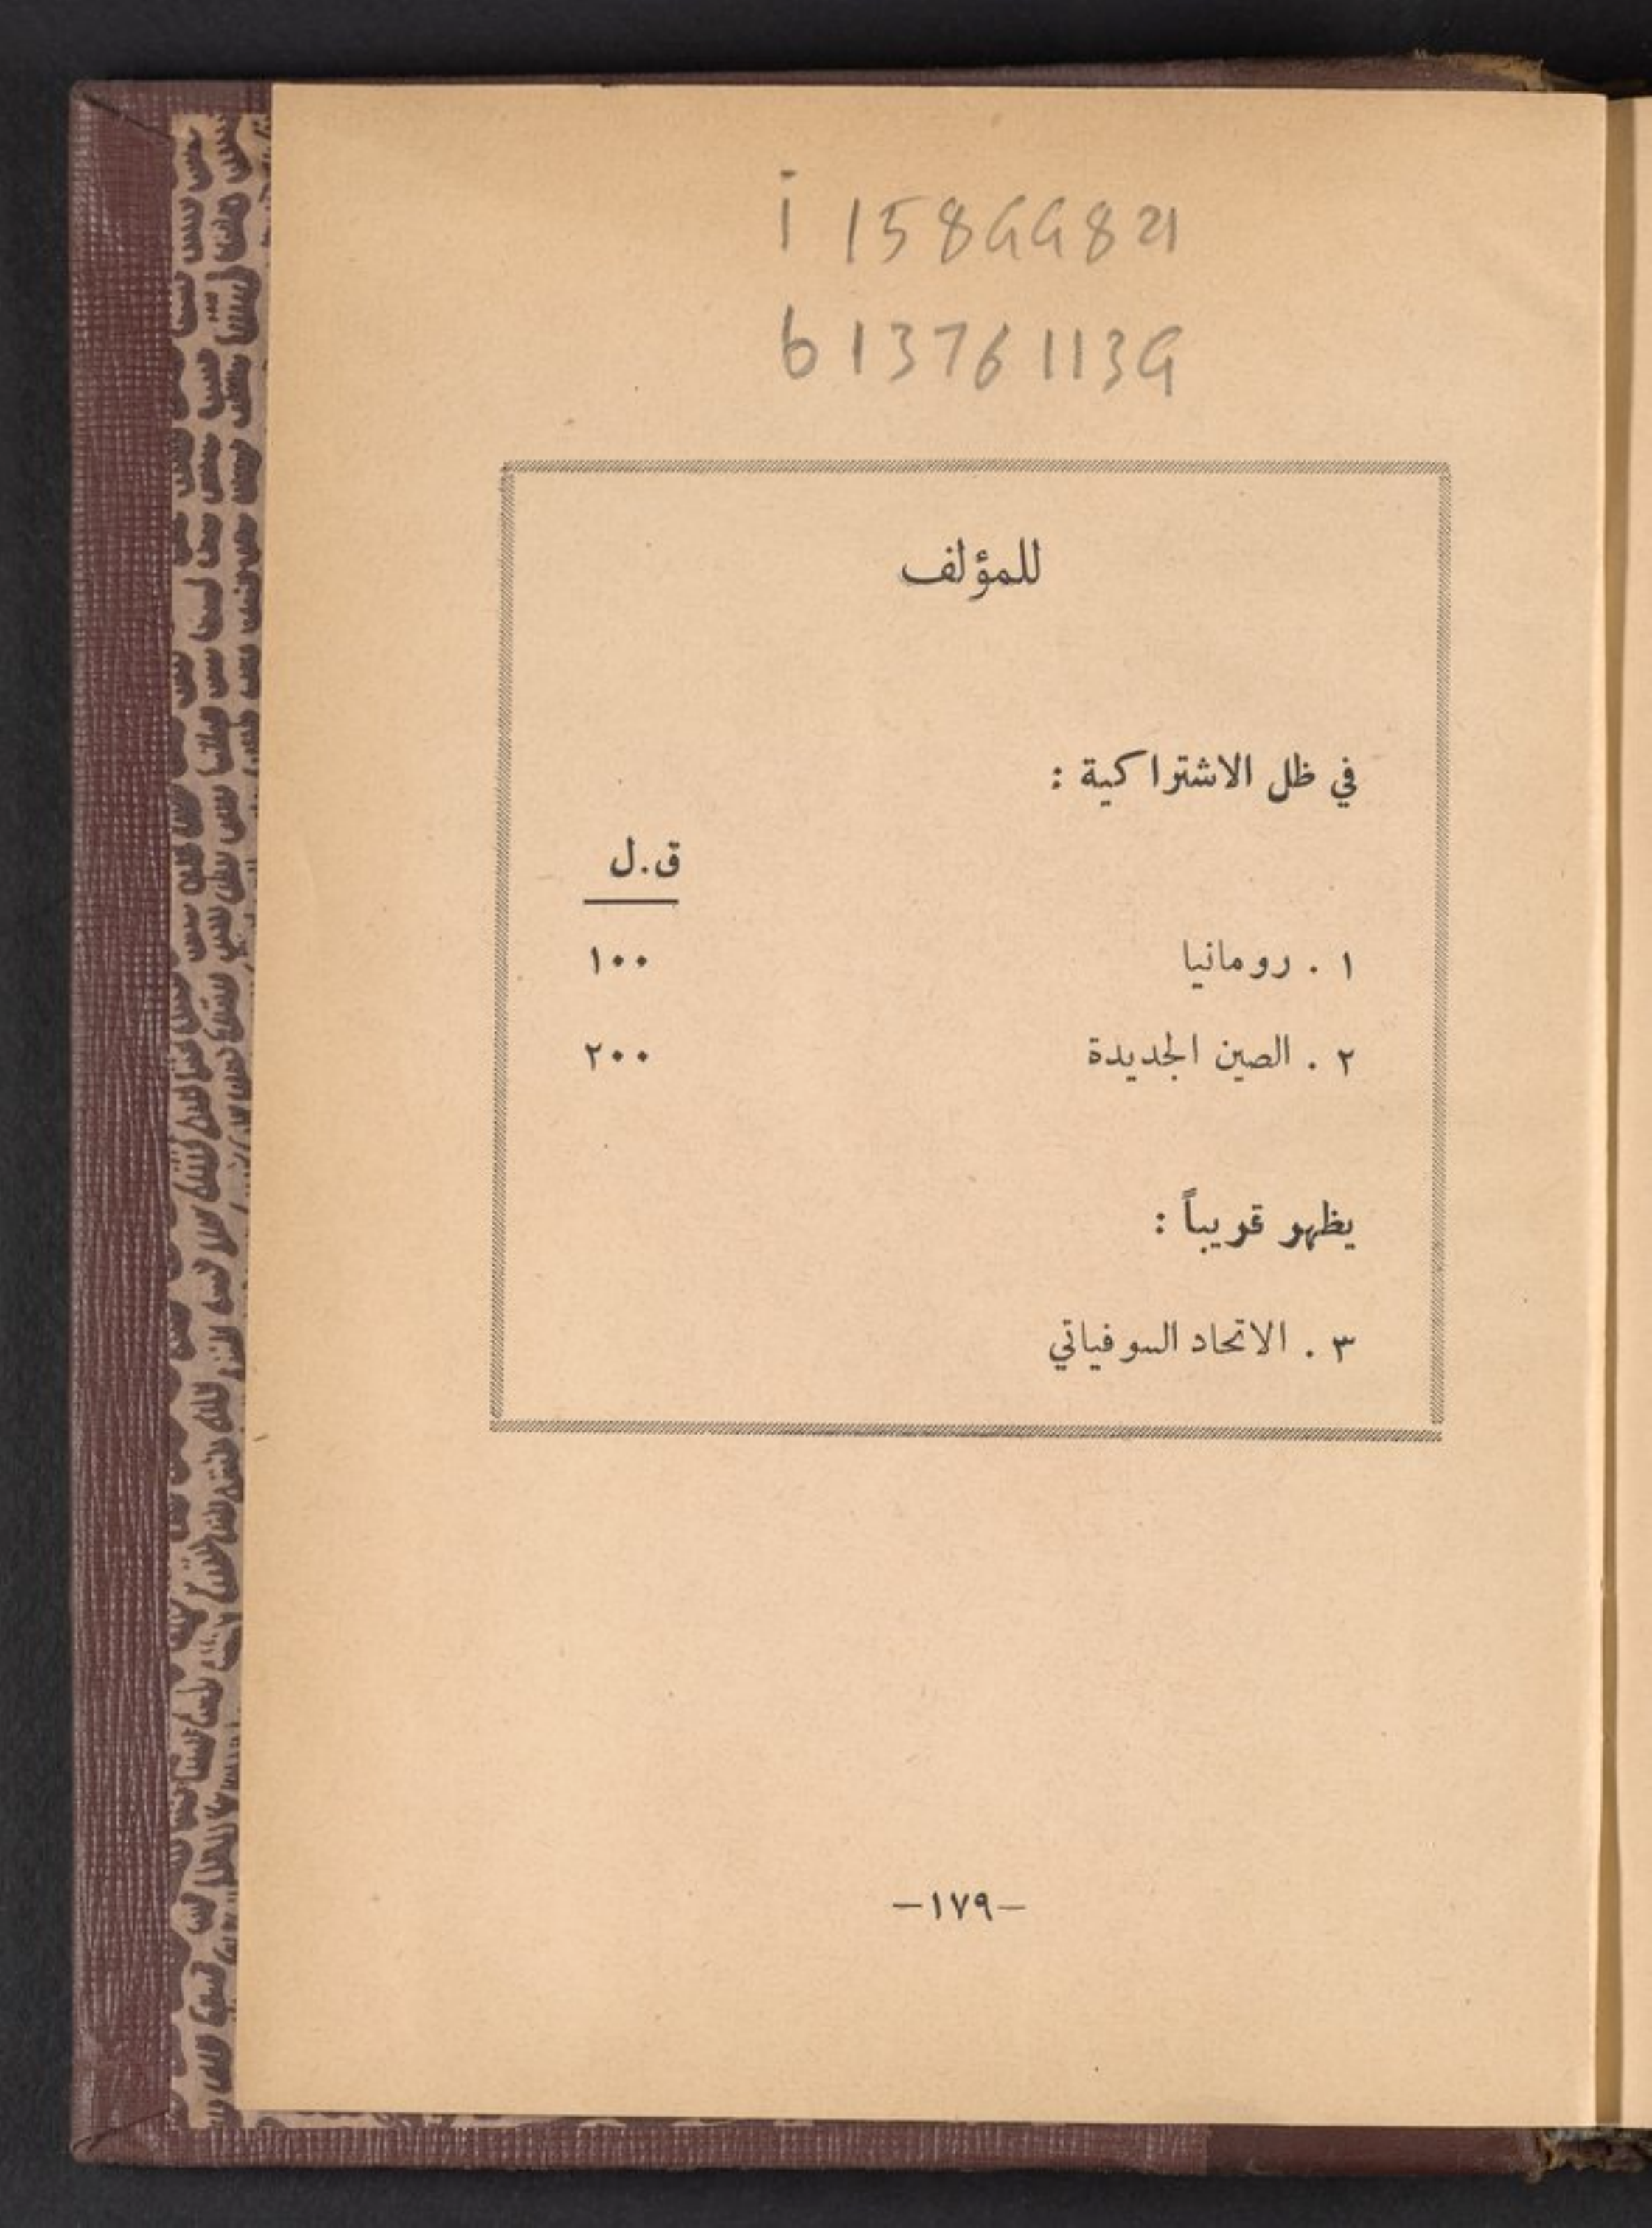 i 15899821
b 13761139
للمؤلف
في ظل الاشتراكية :
ق.ل
١ . رومانيا ١٠٠
٢ . الصين الجديدة ٢٠٠
يظهر قريباً :
٣ . الاتحاد السوفياتي
—١٧٩—